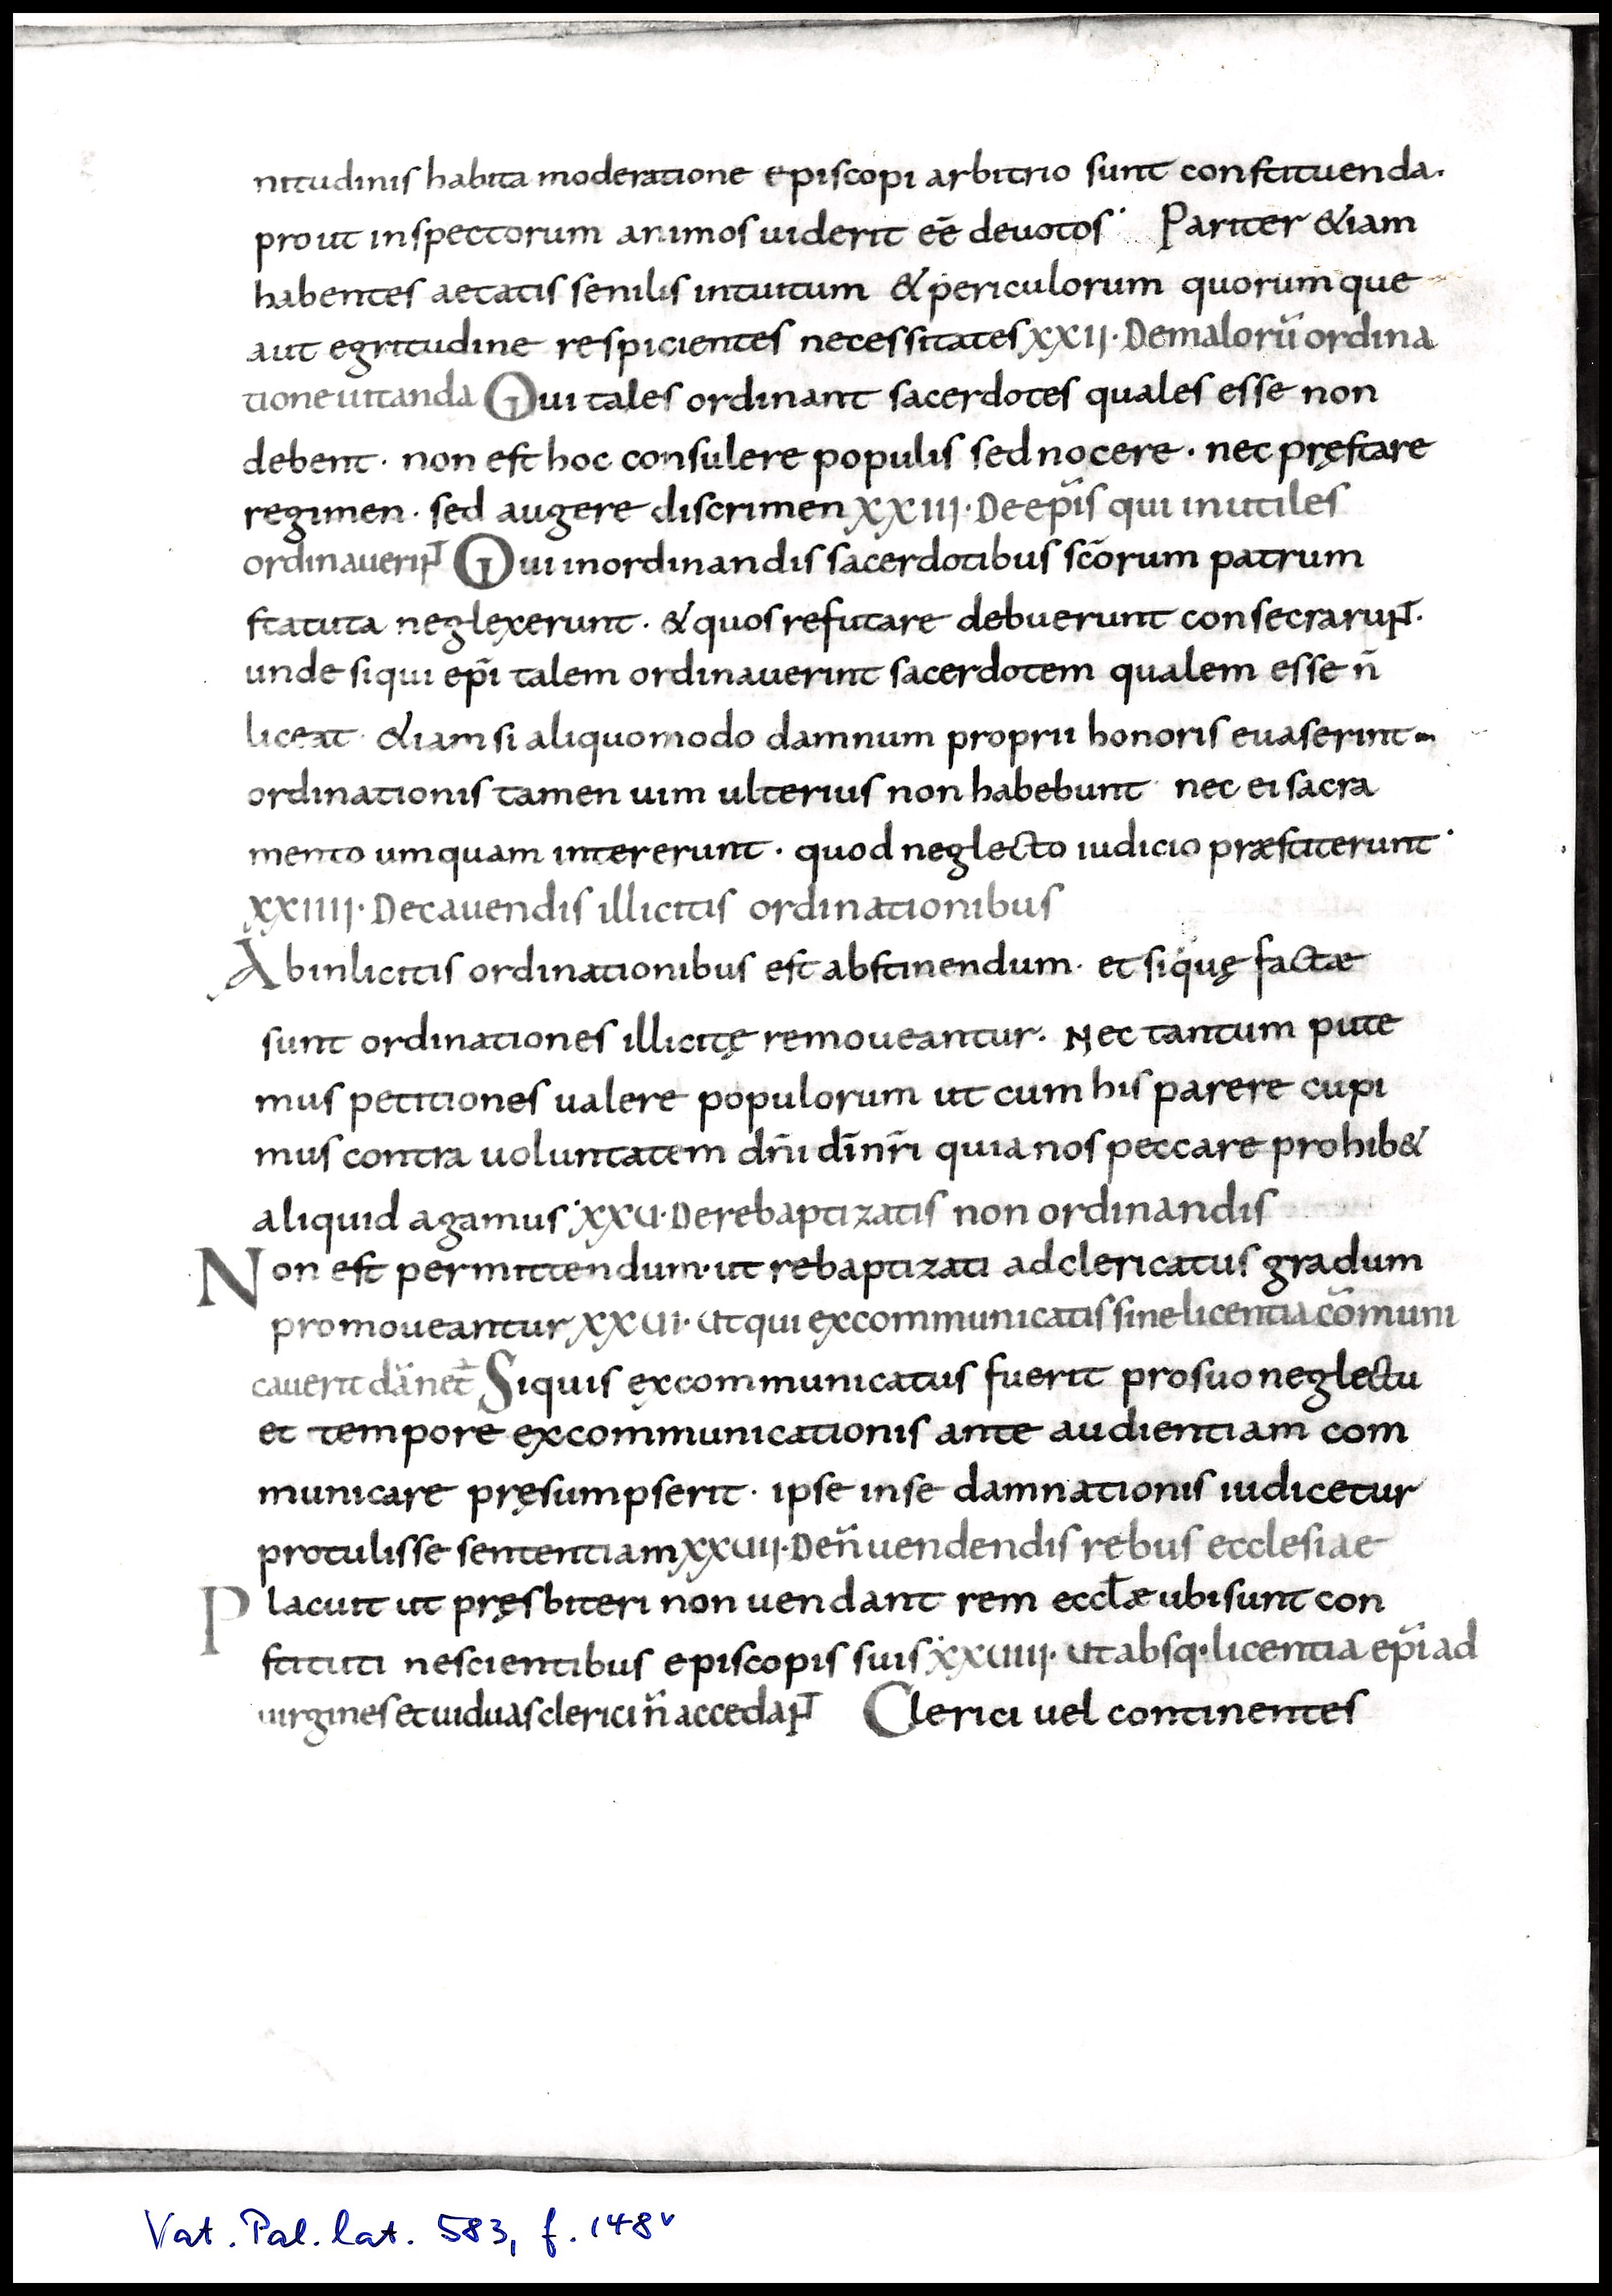 nitudinis habita moderatione episcopi arbitrio sunt constituenda.
prout inspectorum animos uiderit eē deuotos· Pariter &iam
habentes aetatis senilis intuitum & periculorum quorumque
aut egritudine respicientes necessitates XXII· De maloru̅ ordina
tione uitanda Qui tales ordinant sacerdotes quales esse non
debent· non est hoc consulere populis sed nocere· nec pręstare
regimen· sed augere discrimen XXIII· De ep̅is qui inutiles
ordinauerin̅t Qui inordinandis sacerdotibus sc̅orum patrum
statuta neglexerunt· & quos refutare debuerunt consecrarunt·
unde siqui ep̅i talem ordinauerint sacerdotem qualem esse n̅
liceat· &iam si aliquomodo damnum proprii honoris euaserint
ordinationis tamen uim ulterius non habebunt nec ei sacra
mento umquam intererunt· quod neglecto iudicio præstiterunt·
XXIIII· De cauendis illicitis ordinationibus
Ab inlicitis ordinationibus est abstinendum· et si quę factæ
sunt ordinationes illicitę remoueantur· Nec tantum pute
mus petitiones ualere populorum ut cum his parere cupi
mus contra uoluntatem dn̅i di̅ nr̅i quia nos peccare prohib&
aliquid agamus· XXU· De rebaptizatis non ordinandis
Non est permittendum· ut rebaptizati ad clericatus gradum
promoueantur XXUI· Ut qui excommunicatis sine licentia co̅muni
cauerit da̅net̅ Siquis excommunicatus fuerit pro suo neglectu
et tempore excommunicationis ante audientiam com
municare pręsumpserit· ipse in se damnationis iudicetur
protulisse sententiam XXUII· De n̅ uendendis rebus ecclesiae
Placuit ut pręsbiteri non uendant rem eccl̅æ ubi sunt con
stituti nescientibus episcopis suis· XXUIII· Ut absq· licentia ep̅i ad
uirgines et uiduas clerici n̅ accedant Clerici uel continentes
Vat. Pal. lat. 583, f. 148ᵛ